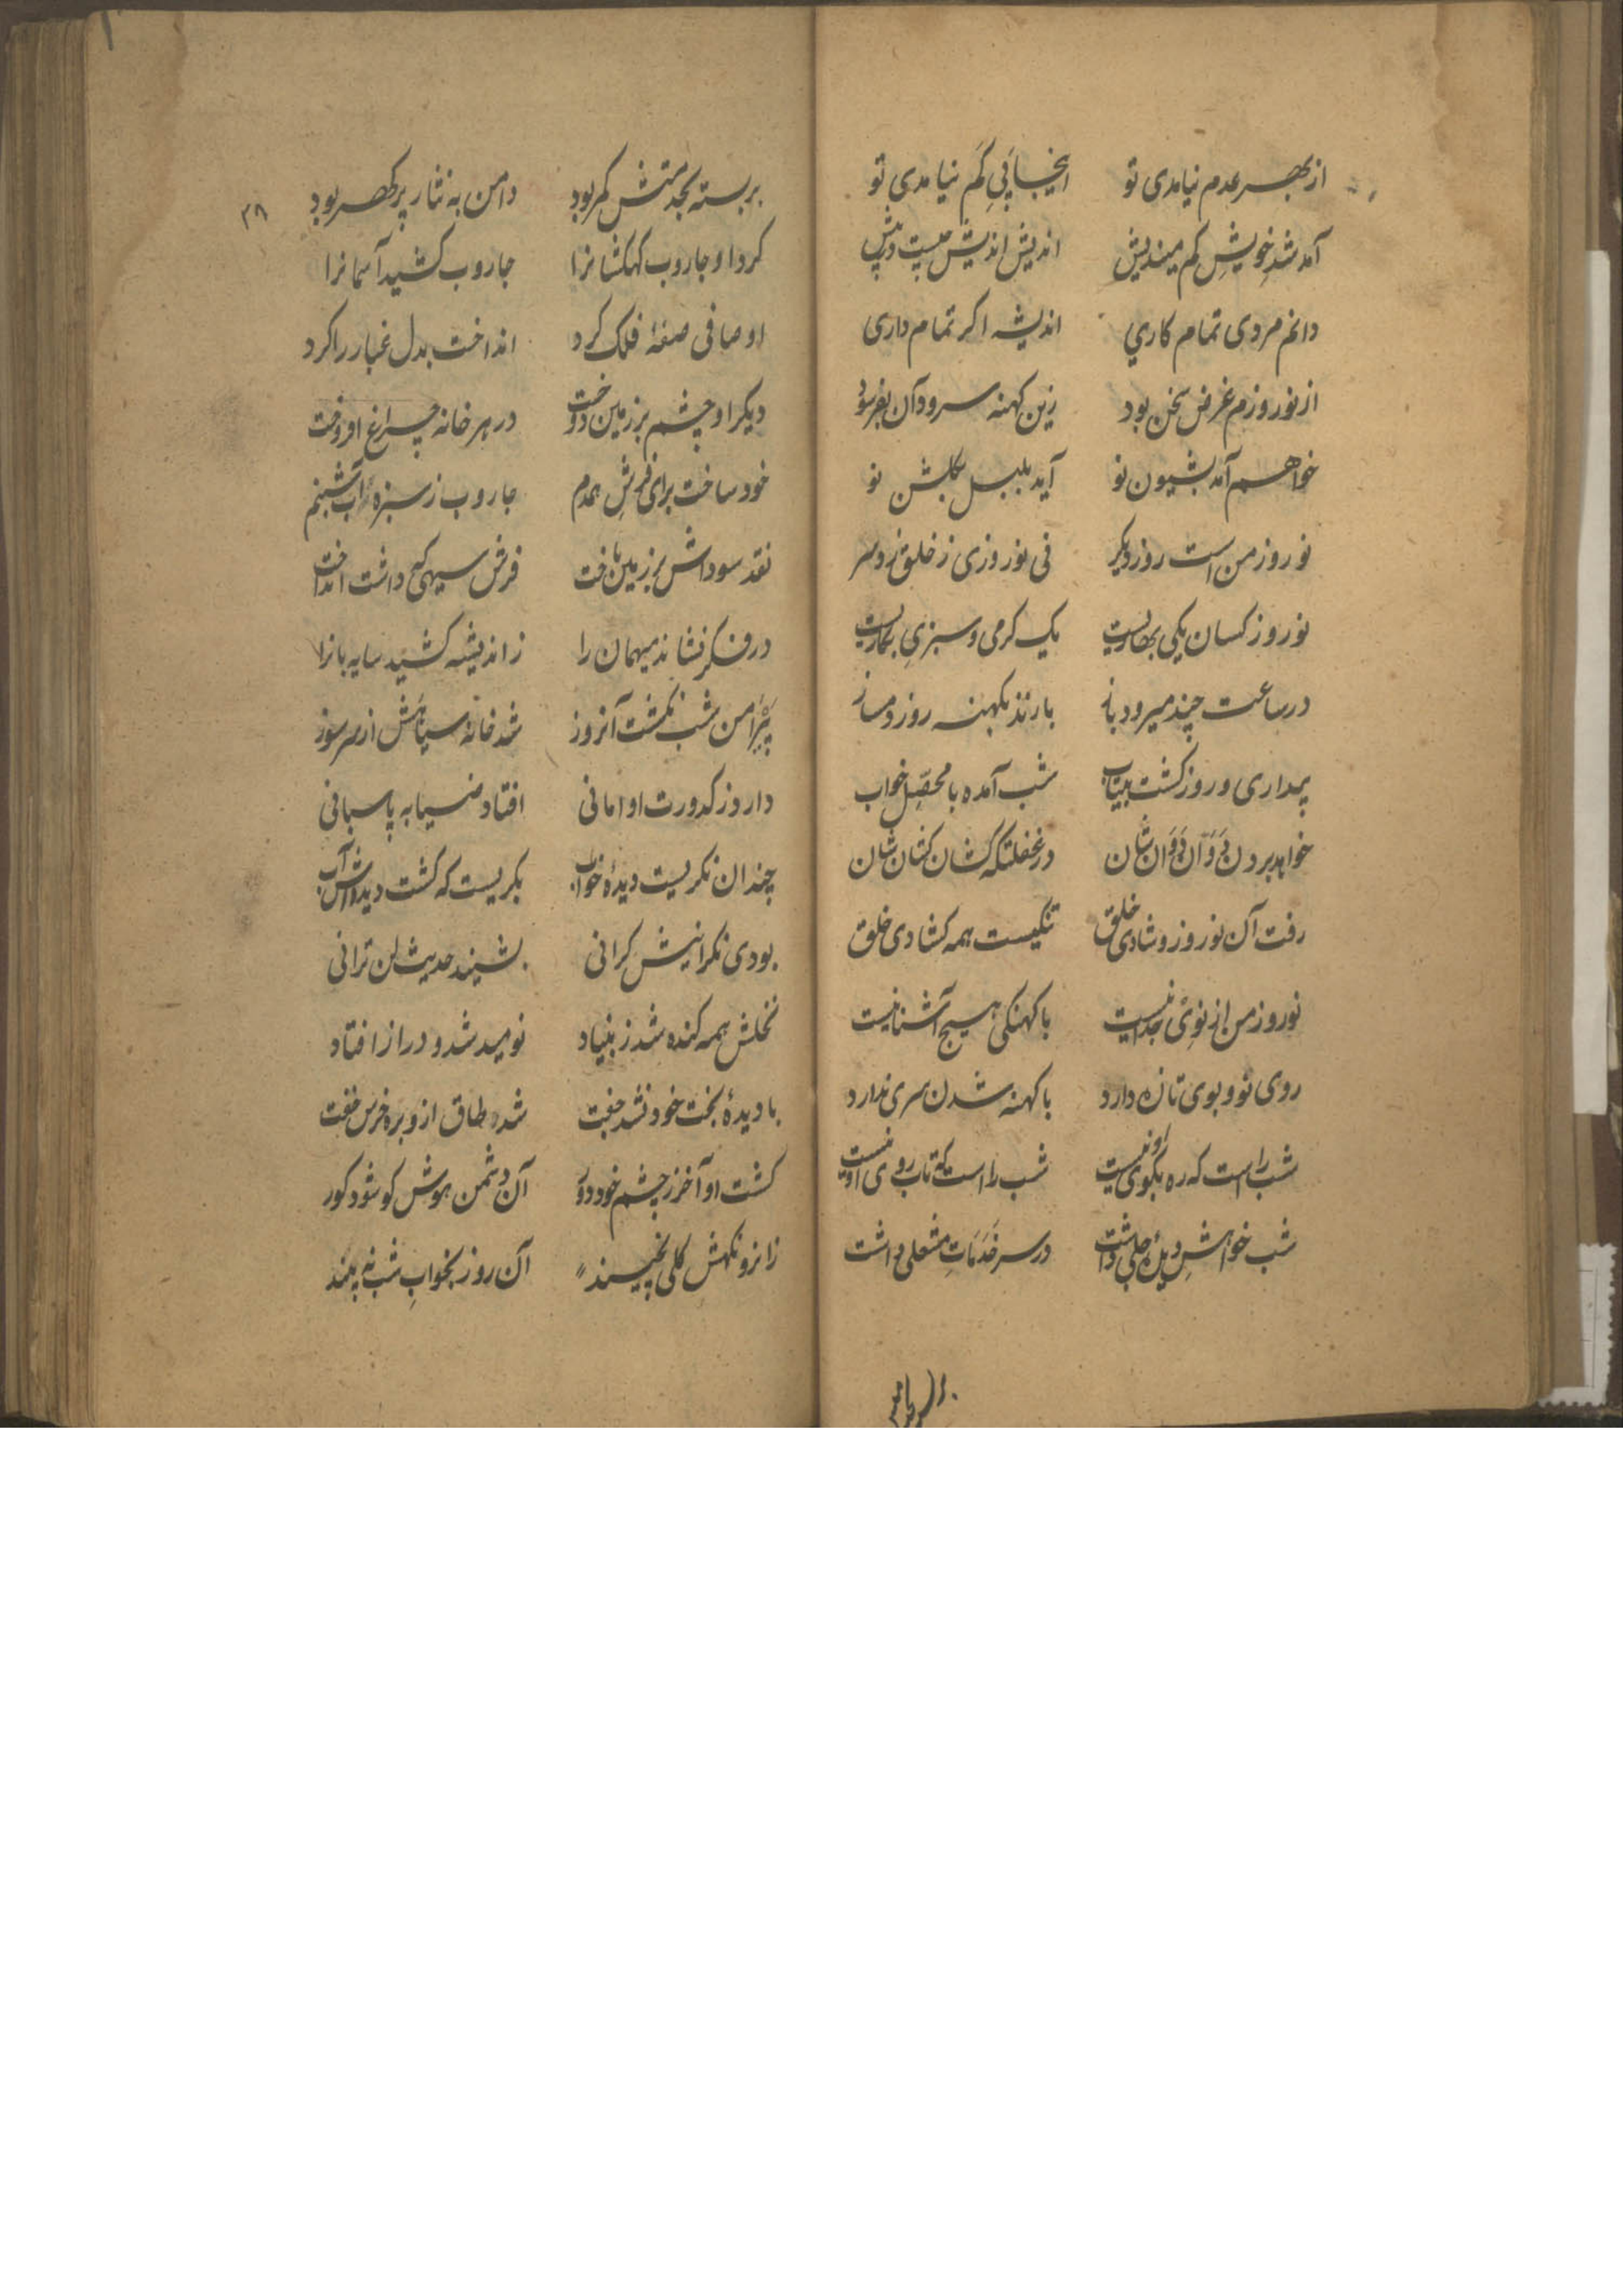 از بهر عدم نیامدی تو اینجا پیِ کَم نیامدی تو
آمد شدِ خویشِ کم میندیش اندیش اندیش چیست در پیش
دانم مردی تمام کاری اندیشه اگر تمام داری
از نوروزم غرض سخن بود زین کهنه سرود آن بفرسود
خواهم آمد بشیون نو آید بلبل بگلشن نو
نوروز من است روز دیگر نی نوروزی ز خلق زد سر
نوروز کسان یکی بهاریست یک گرمی و سبزیِ بکاریست
در ساعت چند میرود باز بازند بکهنه روز دمساز
بیداری و روز گشت بیتاب شب آمده با محصّل خواب
خواهد بردن دَوَان دَوَان شان در غفلتکه کشان کشان شان
رفت آن نوروز و شادی خلق تنگیست همه گشادی خلق
نوروز من از نوئ جدا نیست با کهنگی هیچ آشنا نیست
روی نو و بوی تازه دارد با کهنه شدن سری ندارد
شب راست که ره بکوی او نیست شب راست که تاب روی او نیست
شب خواهش دید جلی داشت در سر قَدَمَاتِ مشعلی داشت
بربسته بخدمتش کمر بود دامن به نثار پر گهر بود
۳۸
کرد او جاروب کهکشانرا جاروب کشید آسمانرا
او صافی صفهٔ فلک کرد انداخت بدل غبار را کرد
دیکر او چشم بر زمین دوخت در هر خانه چراغ افروخت
خود ساخت برای فرش همدم جاروب ز سبزه آب شبنم
نقد سوداش بر زمین تافت فرش سیهی که داشت انداخت
در فکر نشاند میهمان را ز اندیشه کشید سایه بانرا
پیرامن شب نکشت آنروز شد خانه سیاهش از سر سوز
دار و ز کدورت او امانی افتاد ضیا به پاسبانی
چندان نکریست دیدهٔ خواب بکریست که کشت دیده‌اش آب
بودی نکرانیش کرانی بشنید حدیث لن ترانی
نخلش همه کنده شد ز بنیاد نومید شد و دراز افتاد
با دیدهٔ بخت خود نشد جفت شد طاق از و بره خرس خفت
کشت او آخر ز چشم خود دور آن دشمن هوش کو شود کور
زانرو نکهش کلی نچیند آن روز بخوابِ شب نه بیند